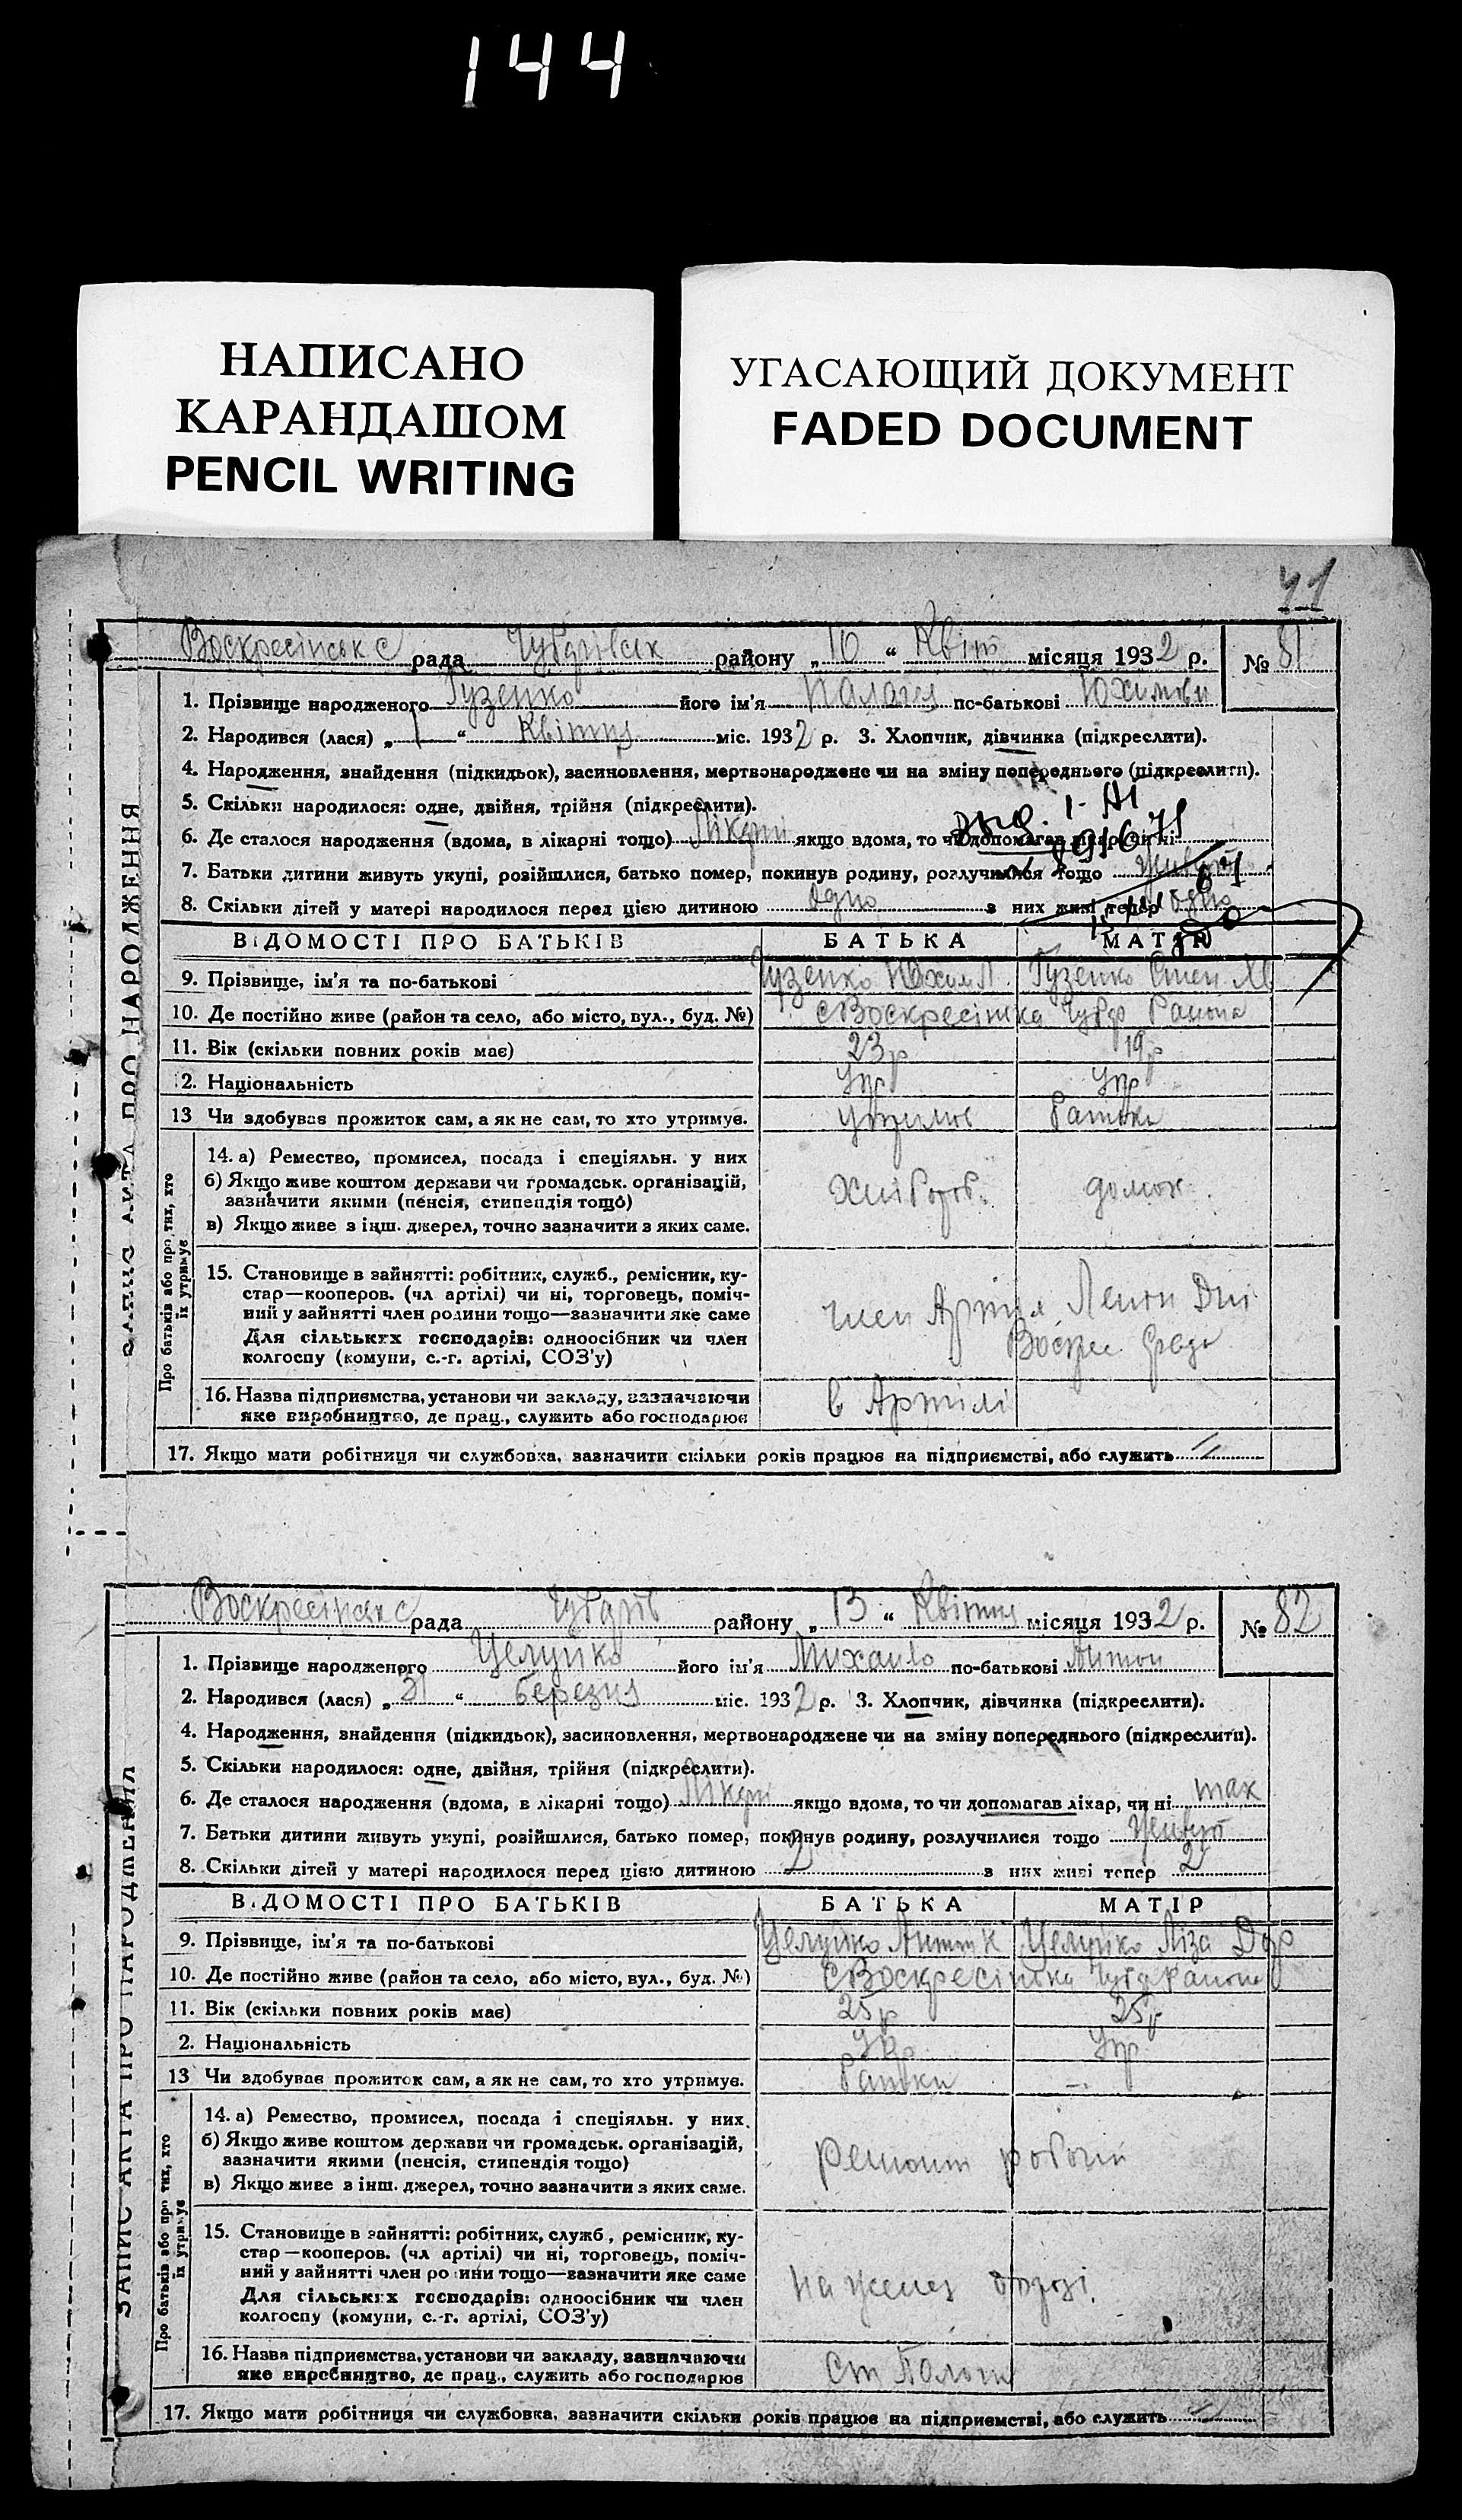 144
НАПИСАНО
КАРАНДАШОМ
PENCIL WRITING
УГАСАЮЩИЙ ДОКУМЕНТ
FADED DOCUMENT
41
ЗАПИС АКТА ПРО НАРОДЖЕННЯ
Воскресінськ с рада району „10“ Квіт місяця 1932 р. № 81
1. Прізвище народженого Гузенко його ім'я Палагея по-батькові Юхимови
2. Народився (лася) „1“ Квітня міс. 1932 р. 3. Хлопчик, дівчинка (підкреслити).
4. Народження, знайдення (підкидьок), засиновлення, мертвонароджене чи на зміну попереднього (підкреслити).
5. Скільки народилося: одне, двійня, трійня (підкреслити).
6. Де сталося народження (вдома, в лікарні тощо) якщо вдома, то чи допомагав лікар, чи ні
7. Батьки дитини живуть укупі, розійшлися, батько помер, покинув родину, розлучилися тощо живуть
8. Скільки дітей у матері народилося перед цією дитиною одно з них живі тепер одно
ВІДОМОСТІ ПРО БАТЬКІВ БАТЬКА МАТІР
9. Прізвище, ім'я та по-батькові Гузенко Юхим Л. Гузенко
10. Де постійно живе (район та село, або місто, вул., буд. №) с Воскресінка Чубар Района
11. Вік (скільки повних років має) 23р 19р
12. Національність Укр Укр
13 Чи здобував прожиток сам, а як не сам, то хто утримує.
Про батьків або про тих, хто їх утримує
14. а) Ремество, промисел, посада і спеціяльн. у них
б) Якщо живе коштом держави чи громадськ. організацій,
зазначити якими (пенсія, стипендія тощо)
в) Якщо живе з інш. джерел, точно зазначити з яких саме.
Хлібороб. домох.
15. Становище в зайнятті: робітник, служб., ремісник, ку-
стар—кооперов. (чл артілі) чи ні, торговець, поміч-
ний у зайнятті член родини тощо—зазначити яке саме
Для сільських господарів: одноосібник чи член
колгоспу (комуни, с.-г. артілі, СОЗ'у)
член Артіл
16. Назва підприємства, установи чи закладу, зазначаючи
яке виробництво, де прац., служить або господарює
в Артілі
17. Якщо мати робітниця чи службовка, зазначити скільки років працює на підприємстві, або служить
ЗАПИС АКТА ПРО НАРОДЖЕННЯ
Воскресінськ с рада району „13“ Квітня місяця 1932 р. № 82
1. Прізвище народженого Целуйко його ім'я Михаило по-батькові Антон
2. Народився (лася) „31“ березня міс. 1932 р. 3. Хлопчик, дівчинка (підкреслити).
4. Народження, знайдення (підкидьок), засиновлення, мертвонароджене чи на зміну попереднього (підкреслити).
5. Скільки народилося: одне, двійня, трійня (підкреслити).
6. Де сталося народження (вдома, в лікарні тощо) якщо вдома, то чи допомагав лікар, чи ні так
7. Батьки дитини живуть укупі, розійшлися, батько помер, покинув родину, розлучилися тощо живут
8. Скільки дітей у матері народилося перед цією дитиною 2 з них живі тепер 2
ВІДОМОСТІ ПРО БАТЬКІВ БАТЬКА МАТІР
9. Прізвище, ім'я та по-батькові Целуйко Антон К Целуйко Ліза
10. Де постійно живе (район та село, або місто, вул., буд. №) с Воскресінка Чубар Района
11. Вік (скільки повних років має) 25р 25р
2. Національність Укр Укр
13 Чи здобував прожиток сам, а як не сам, то хто утримує.
Про батьків або про тих, хто їх утримує
14. а) Ремество, промисел, посада і спеціяльн. у них
б) Якщо живе коштом держави чи громадськ. організацій,
зазначити якими (пенсія, стипендія тощо)
в) Якщо живе з інш. джерел, точно зазначити з яких саме.
ремонт робочий
15. Становище в зайнятті: робітник, служб., ремісник, ку-
стар—кооперов. (чл артілі) чи ні, торговець, поміч-
ний у зайнятті член родини тощо—зазначити яке саме
Для сільських господарів: одноосібник чи член
колгоспу (комуни, с.-г. артілі, СОЗ'у)
на желез дорозі.
16. Назва підприємства, установи чи закладу, зазначаючи
яке виробництво, де прац., служить або господарює
Ст Пологи
17. Якщо мати робітниця чи службовка, зазначити скільки років працює на підприємстві, або служить